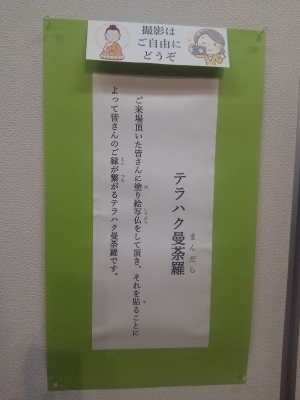 撮影は
ご自由に
どうぞ
テラハク曼荼羅
まんだら
ご来場頂いた皆さんに塗り絵写仏をして頂き、それを貼ることに
ぬ
しゃぶつ
は
よって皆さんのご縁が繋がるテラハク曼荼羅です。
えん
つな